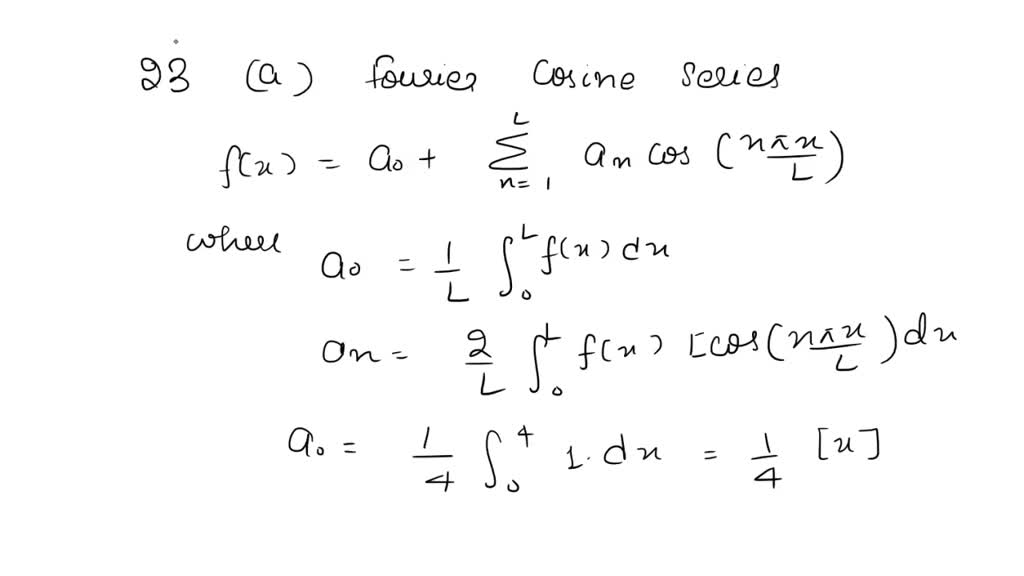 23 (a) fourier Cosine series
f(x) = a₀ + ∑_{n=1}^{L} aₙ cos (nπx/L)
where a₀ = 1/L ∫₀^L f(x) dx
aₙ = 2/L ∫₀^L f(x) [cos(nπx/L) dx
a₀ = 1/4 ∫₀^4 1. dx = 1/4 [x]